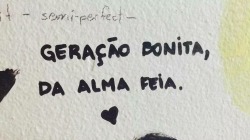 - semi-perfect -
GERAÇÃO BONITA,
DA ALMA FEIA.